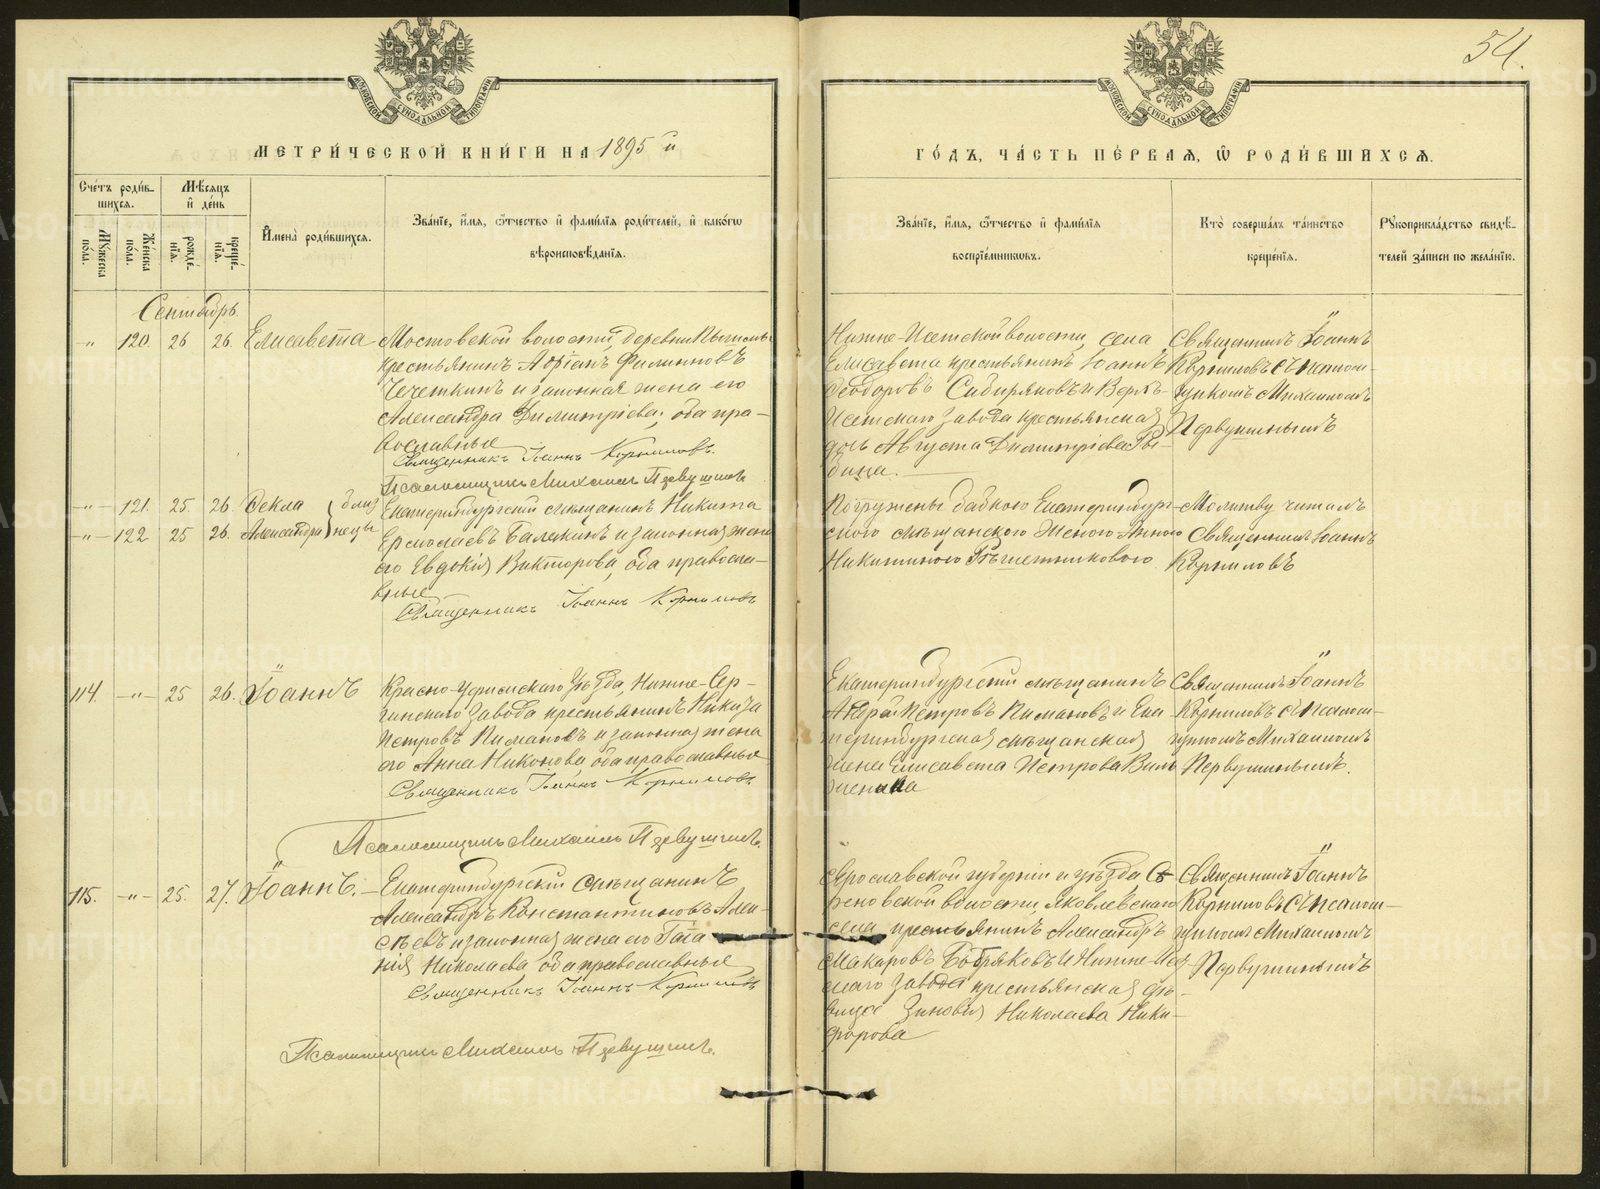 54.
МОСКОВСКОЙ СѴНОДАЛЬНОЙ ТИПОГРАФІИ
МОСКОВСКОЙ СѴНОДАЛЬНОЙ ТИПОГРАФІИ
МЕТРИ́ЧЕСКОЙ КНИ́ГИ НА 1895 й
ГО́ДЪ, ЧА́СТЬ ПЕ́РВАЯ, Ѡ҆ РОДИ́ВШИХСЯ.
Сче́тъ роди́в-
шихся.
Мꙋ́жеска по́ла.
Же́нска по́ла.
Мѣ́сяцъ и҆ де́нь
рожде́нїя.
креще́нїя.
И҆мена̀ роди́вшихся.
Зва́нїе, и҆́мя, ѻ҆́тчество и҆ фами́лїя роди́телей, и҆ како́гѡ
вѣроисповѣ́данїя.
Зва́нїе, и҆́мя, ѻ҆́тчество и҆ фами́лїя
воспрїе́мникѡвъ.
Кто̀ соверша́лъ та́инство
креще́нїя.
Рꙋкоприкла́дство свидѣ́-
телей за́писи по жела́нїю.
Сентябрь.
-"- 120. 26 26. Елисавета
Мостовской волости, деревни
крестьянинъ Адріанъ Филипповъ
Чечеткинъ и законная жена его
Александра Димитріева, оба пра-
вославные
Священникъ Іоаннъ Корниловъ.
Псаломщикъ Михаилъ Первушинъ.
Нижне-Исетской волости, села
Елисавета крестьянинъ Іоаннъ
Ѳеодоровъ Сибиряковъ и Верхъ-
Исетскаго завода крестьянская
дочь Августа Димитріева Ря-
бина.
Священникъ Іоаннъ
Корниловъ съ псалом-
щикомъ Михаиломъ
Первушинымъ
-"- 121. 25. 26. Ѳекла } близ
-"- 122. 25 26. Александра } нецы
Екатеринбургскій мѣщанинъ Никита
Ермолаевъ Балакинъ и законная жена
его Евдокія Викторова, оба правосла-
вные
Священникъ Іоаннъ Корниловъ
Погружены бабкою Екатеринбург-
скою мѣщанскою женою Анною
Никитиною Рѣшетниковою
Молитву читалъ
Священникъ Іоаннъ
Корниловъ
114. -"- 25 26. Іоаннъ
Красно-Уфимскаго уѣзда, Нижне-Сер-
гинскаго завода крестьянинъ Никита
Петровъ Пимановъ и законная жена
его Анна Никонова, оба православные
Священникъ Іоаннъ Корниловъ
Псаломщикъ Михаилъ Первушинъ.
Екатеринбургскій мѣщанинъ
Андрей Петровъ Пимановъ и Ека
теринбургская мѣщанская
жена Елисавета Петрова
Священникъ Іоаннъ
Корниловъ съ псалом-
щикомъ Михаиломъ
Первушинымъ.
115. -"- 25. 27. Іоаннъ.
Екатеринбургскій мѣщанинъ
Александръ Константиновъ Алек-
сѣевъ и законная жена его Татіа
нія Николаева, оба православные
Священникъ Іоаннъ Корниловъ
Псаломщикъ Михаилъ Первушинъ.
Ярославской губерніи и уѣзда
волости, Яковлевскаго
села крестьянинъ Александръ
Макаровъ Бобряковъ и Нижне-Исет
скаго завода крестьянская дѣ-
вица Зиновія Николаева Ники-
форова
Священникъ Іоаннъ
Корниловъ съ псалом-
щикомъ Михаиломъ
Первушинымъ
METRIKI.GASO-URAL.RU